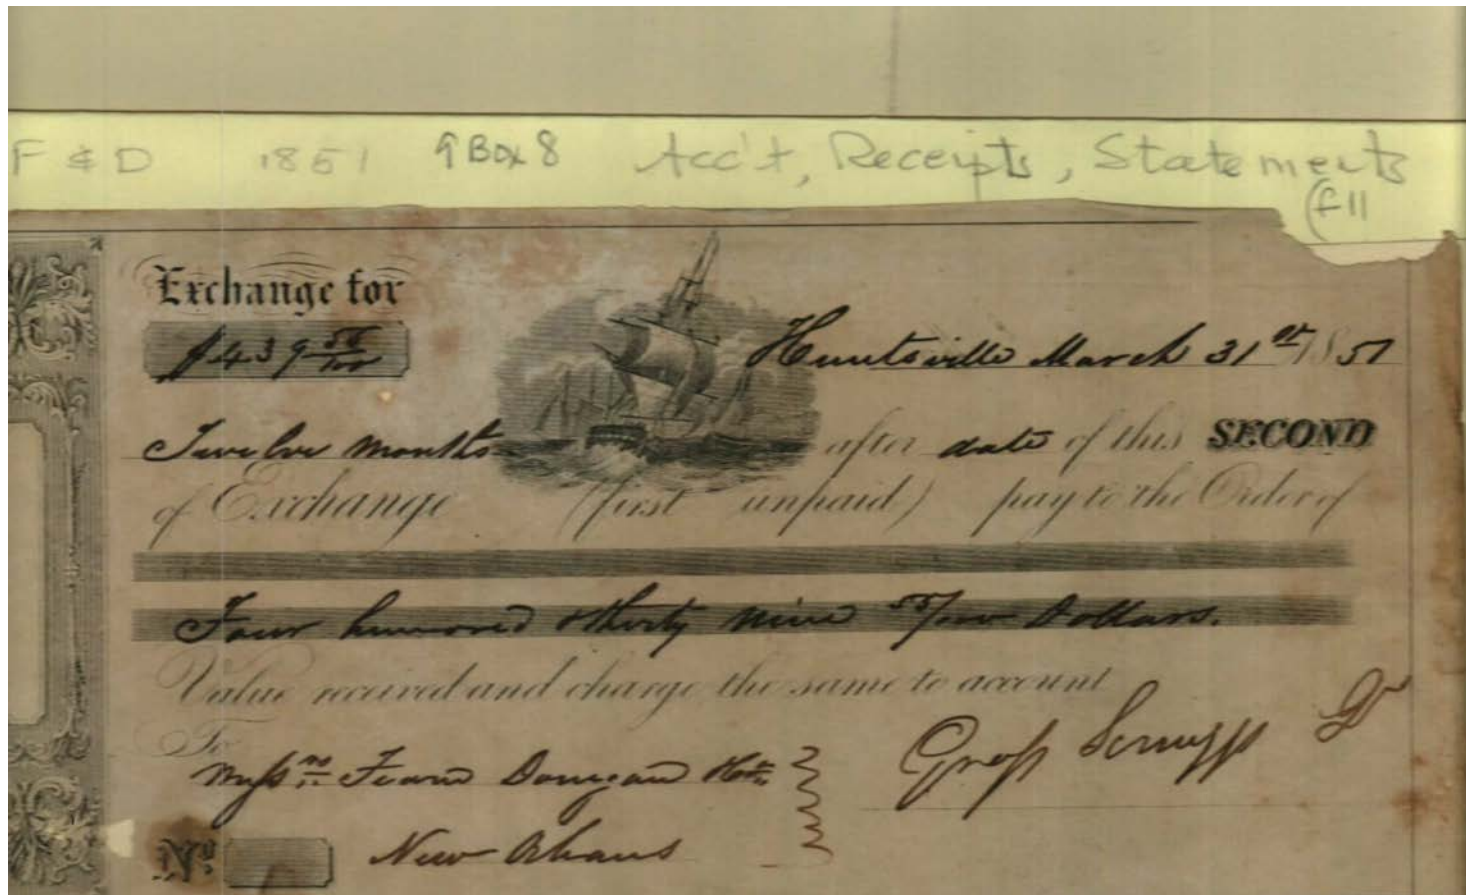 F & D 1851 9 Box 8 Acc't, Receipts, Statements
(f 11
Exchange for
$439 55/100
Huntsville March 31st 1851
Twelve Months after date of this SECOND
of Exchange (first unpaid) pay to the Order of
Four hundred & thirty nine 55/100 Dollars.
Value received and charge the same to account
To
Messrs Fearn Donegan & Co
Gross Scruggs
No
New Orleans